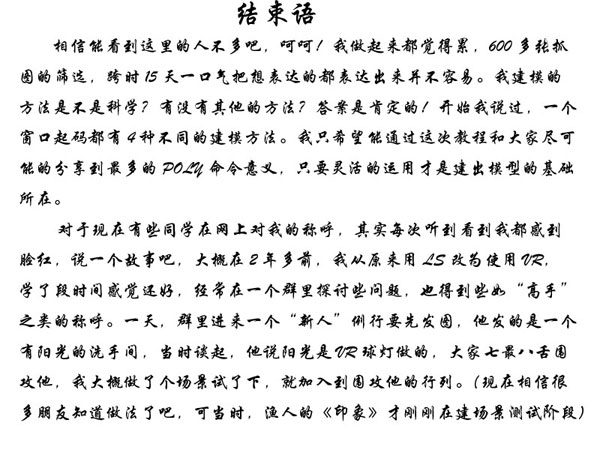 结束语
相信能看到这里的人不多吧，呵呵！我做起来都觉得累，600多张抓
图的筛选，跨时15天一口气把想表达的都表达出来并不容易。我建模的
方法是不是科学？有没有其他的方法？答案是肯定的！开始我说过，一个
窗口起码都有4种不同的建模方法。我只希望能通过这次教程和大家尽可
能的分享到最多的POLY命令意义，只要灵活的运用才是建出模型的基础
所在。
对于现在有些同学在网上对我的称呼，其实每次听到看到我都感到
脸红，说一个故事吧，大概在2年多前，我从原来用LS改为使用VR，
学了段时间感觉还好，经常在一个群里探讨些问题，也得到些如“高手”
之类的称呼。一天，群里进来一个“新人”例行要先发图，他发的是一个
有阳光的洗手间，当时谈起，他说阳光是VR球灯做的，大家七嘴八舌围
攻他，我大概做了个场景试了下，就加入到围攻他的行列。（现在相信很
多朋友知道做法了吧，可当时，渔人的《印象》才刚刚在建场景测试阶段）